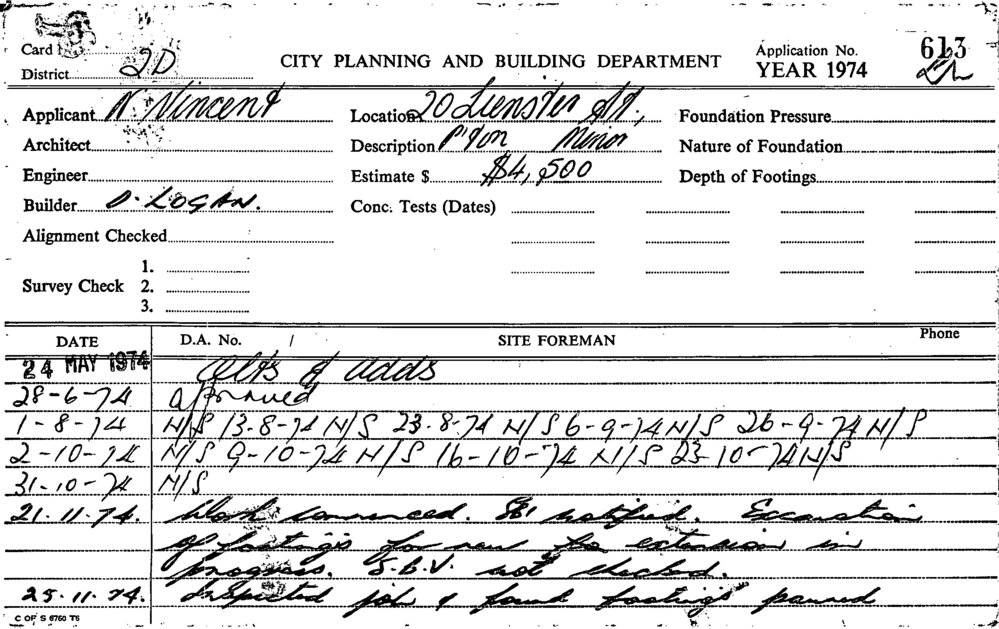 Card
District 2D
CITY PLANNING AND BUILDING DEPARTMENT
Application No. 613
YEAR 1974
Applicant N Vincent
Location 20 Leinster St,
Foundation Pressure
Architect
Description P'ton Minor
Nature of Foundation
Engineer
Estimate $ $4,500
Depth of Footings
Builder D. LOGAN.
Conc. Tests (Dates)
Alignment Checked
1.
Survey Check 2.
3.
DATE D.A. No. / SITE FOREMAN Phone
24 MAY 1974 Alts & adds
28-6-74 approved
1-8-74 N/S 13-8-74 N/S 23-8-74 N/S 6-9-74 N/S 26-9-74 N/S
2-10-74 N/S 9-10-74 N/S 16-10-74 N/S 23-10-74 N/S
31-10-74 N/S
21.11.74. Work commenced. notified. Excavation
of footings for new extension in
progress. S.B.V. not checked.
25.11.74. Inspected job & found footings poured
C OF S 6750 T6